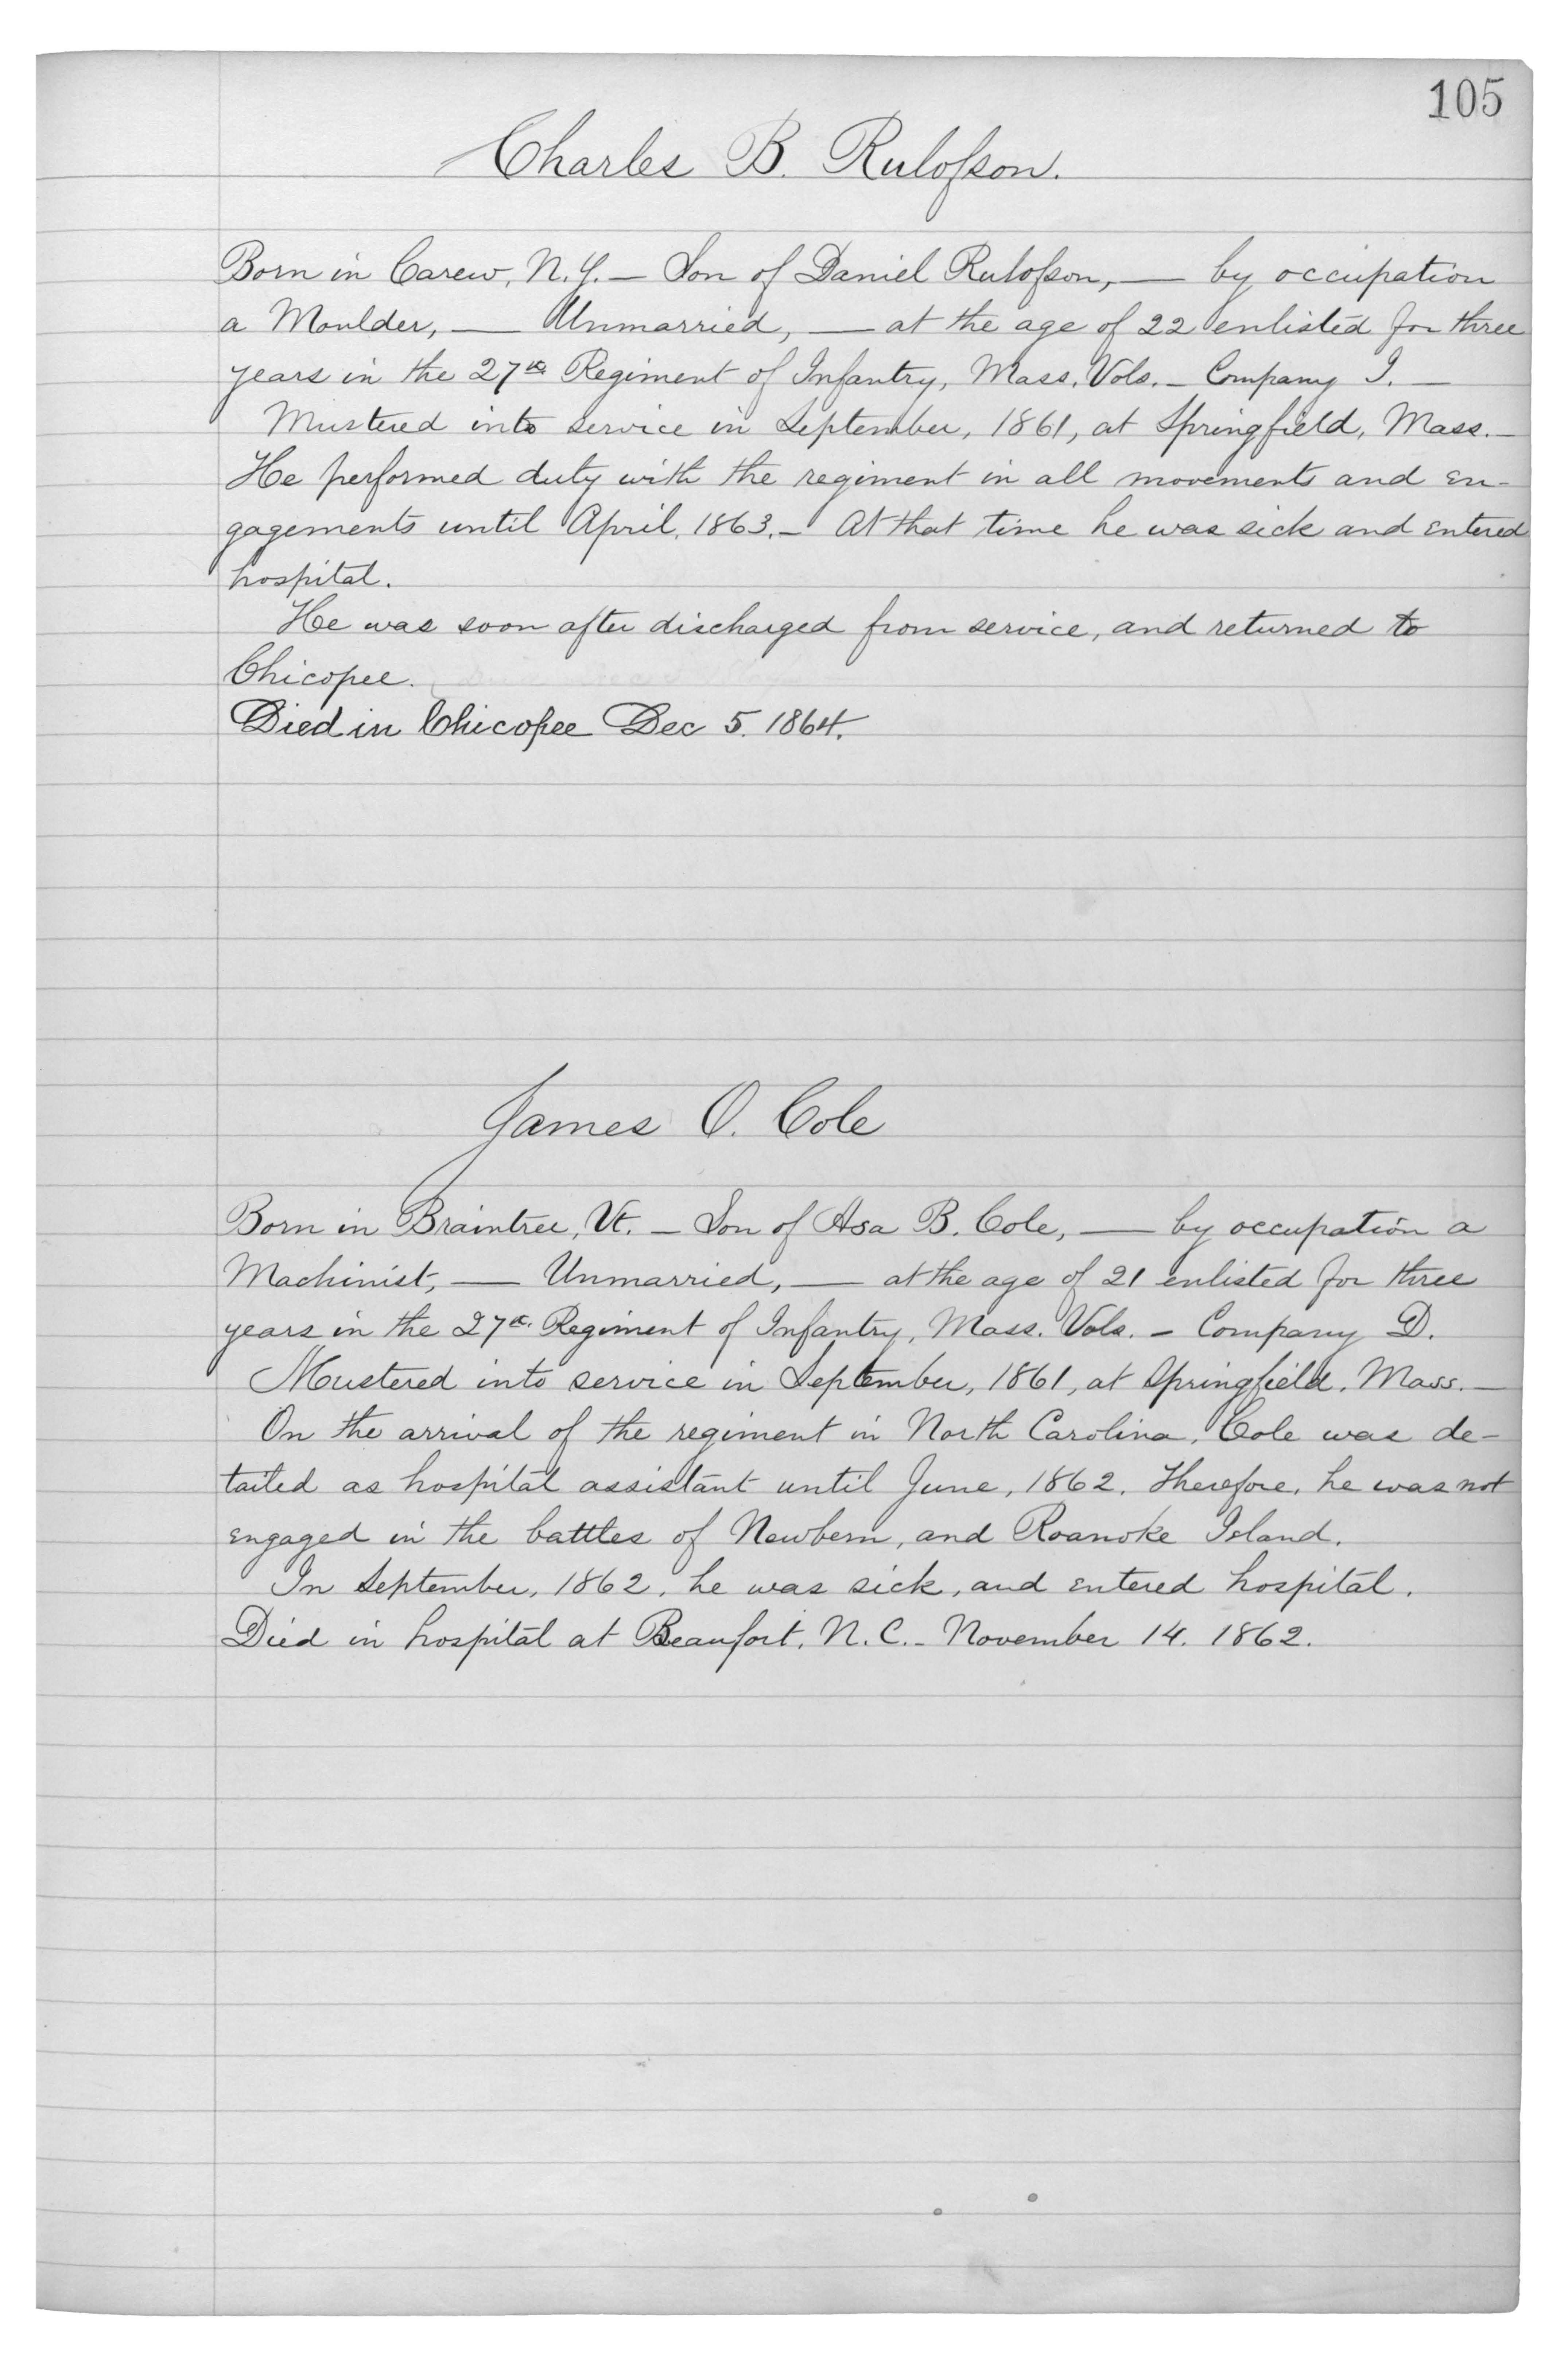 105
Charles B. Rulofson.
Born in Carew, N.Y. — Son of Daniel Rulofson, — by occupation
a Moulder, — Unmarried, — at the age of 22 enlisted for three
years in the 27th Regiment of Infantry, Mass. Vols. — Company I. —
Mustered into service in September, 1861, at Springfield, Mass. —
He performed duty with the regiment in all movements and en-
gagements until April, 1863. — At that time he was sick and entered
hospital.
He was soon after discharged from service, and returned to
Chicopee.
Died in Chicopee Dec 5. 1864.
James O. Cole
Born in Braintree, Vt. — Son of Asa B. Cole, — by occupation a
Machinist, — Unmarried, — at the age of 21 enlisted for three
years in the 27th. Regiment of Infantry, Mass. Vols. — Company D.
Mustered into service in September, 1861, at Springfield, Mass. —
On the arrival of the regiment in North Carolina, Cole was de-
tailed as hospital assistant until June, 1862. Therefore, he was not
engaged in the battles of Newbern, and Roanoke Island.
In September, 1862, he was sick, and entered hospital.
Died in hospital at Beaufort, N.C. — November 14. 1862.